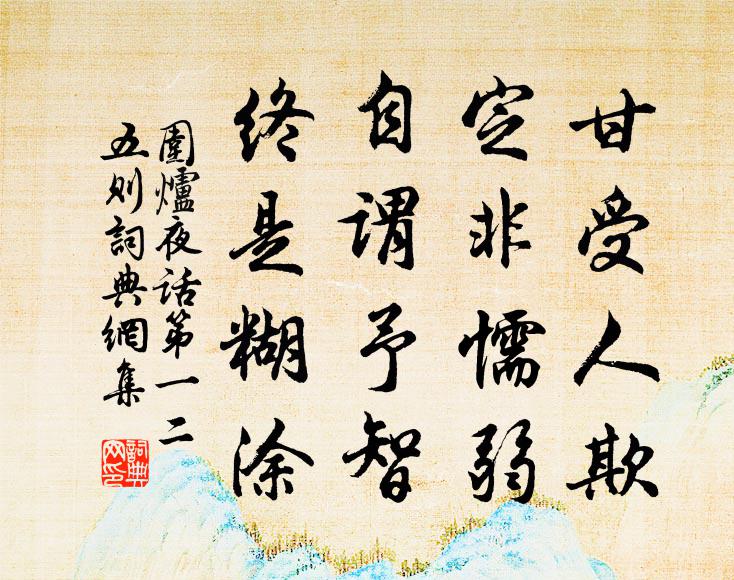 甘受人欺
定非懦弱
自谓予智
终是糊涂
圍爐夜话第一二
五则詞典網集
詞典
网印